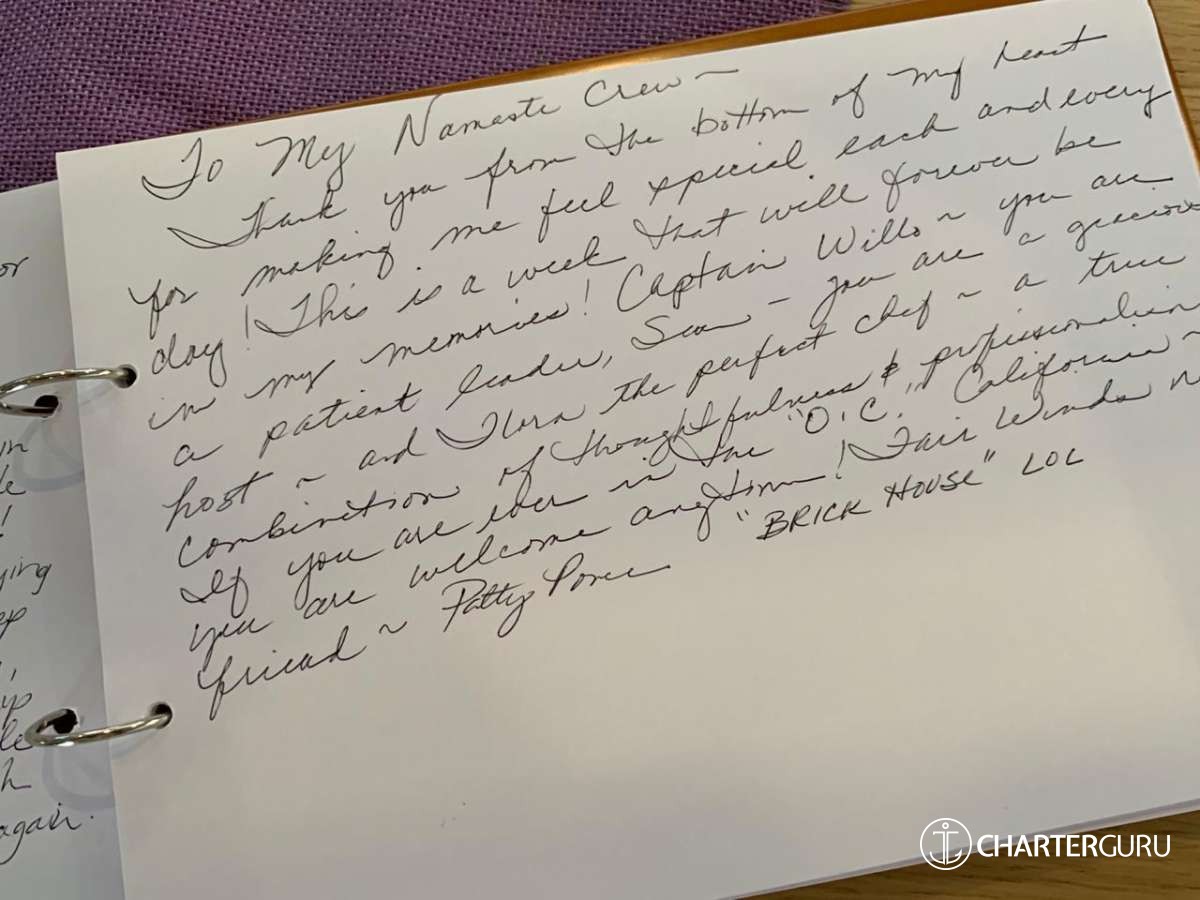 To My Namaste Crew ~
Thank you from the bottom of my heart
for making me feel special each and every
day! This is a week that will forever be
in my memories! Captain Willo ~ you are
a patient leader, Sean ~ you are a gracious
host ~ and Flora the perfect chef ~ a true
combination of thoughtfulness & professionalism
If you are ever in the "O.C.," California ~
you are welcome anytime! Fair Winds
friend ~ Patty
"BRICK HOUSE" LOL
or
in
le
!
ying
ep
,
up
le
h
again.
CHARTERGURU